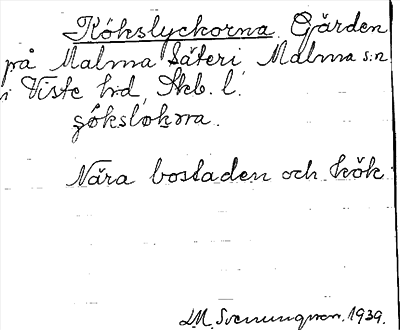 Kökslyckorna. Gärden
på Malma Säteri Malma s:n
i Viste hd, Skb. l.
Nära bostaden och kök
L.M. Svenungsson. 1939.